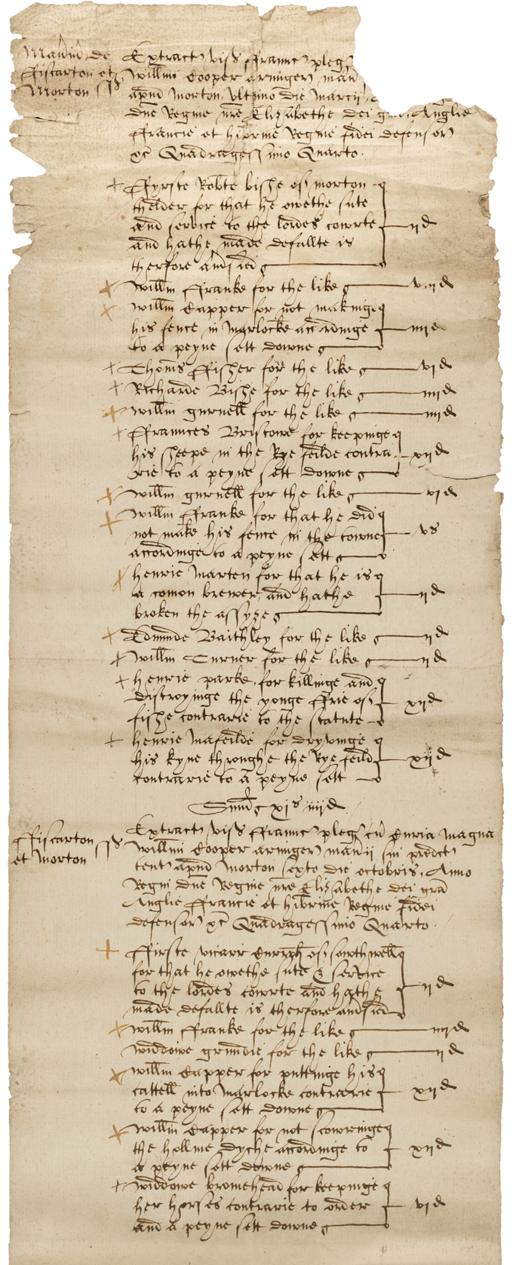 Maniu de Extract vis ffranc pleg
ffiscarton et Willmi Cooper armigeri man
Morton ss apud Morton vltimo die Marcii
dne Regine nre Elizabethe dei gra Anglie
ffrancie et hibernie Regine fidei defensor
&c Quadragessimo Quarto
ffyrste Robte Bishe of morton
for that he owethe sute
and service to the lordes cowrte iid
and hathe made defallte is
therfore amcied
Willm ffranke for the like
Willm Capper for not makinge
his fence in Marlocke accordinge iiiid
to a peyne sett downe
Thoms ffisher for the like vid
Richarde Bishe for the like iiiid
Willm gurnell for the like iiiid
ffraunces Bristowe for keepinge
his sheepe in the Rye feilde contra xiid
rie to a peyne sett downe
Willm gurnell for the like vid
Willm ffranke for that he did
not make his fence in the towne vs
accordinge to a peyne sett
henrie Marten for that he is
a comon brewer and hathe iid
broken the assyze
Edmunde Baithley for the like iid
Willm Turner for the like iid
henrie parke for killinge and
distroyinge the yonge ffrie of xiid
fishe contrarie to the statute
henrie Mafeilde for dryvinge
his kyne throughe the Rye feild xiid
contrarie to a peyne sett
Sum xis iiiid
Extract vis ffranc pleg cu Curia Magna
ffiscarton ss Willmi Cooper armigeri manii sui predict
et Morton tent apud Morton sexto die octobris Anno
Regni dne Regine nre Elizabethe dei gra
Anglie ffrancie et hibernie Regine fidei
defensor &c Quadragessimo Quarto
ffirste vicarr of sowthwell
for that he owethe sute & service
to the lordes cowrte and hathe iid
made defallte is therfore amcied
Willm ffranke for the like iiid
widdowe grundie for the like iid
Willm Capper for puttinge his
cattell into Marlocke contrarie xiid
to a peyne sett downe
Willm Capper for not scowringe
the hollme dyche accordinge to xiid
a peyne sett downe
widdowe bromehead for keepinge
her horses contrarie to order vid
and a peyne sett downe